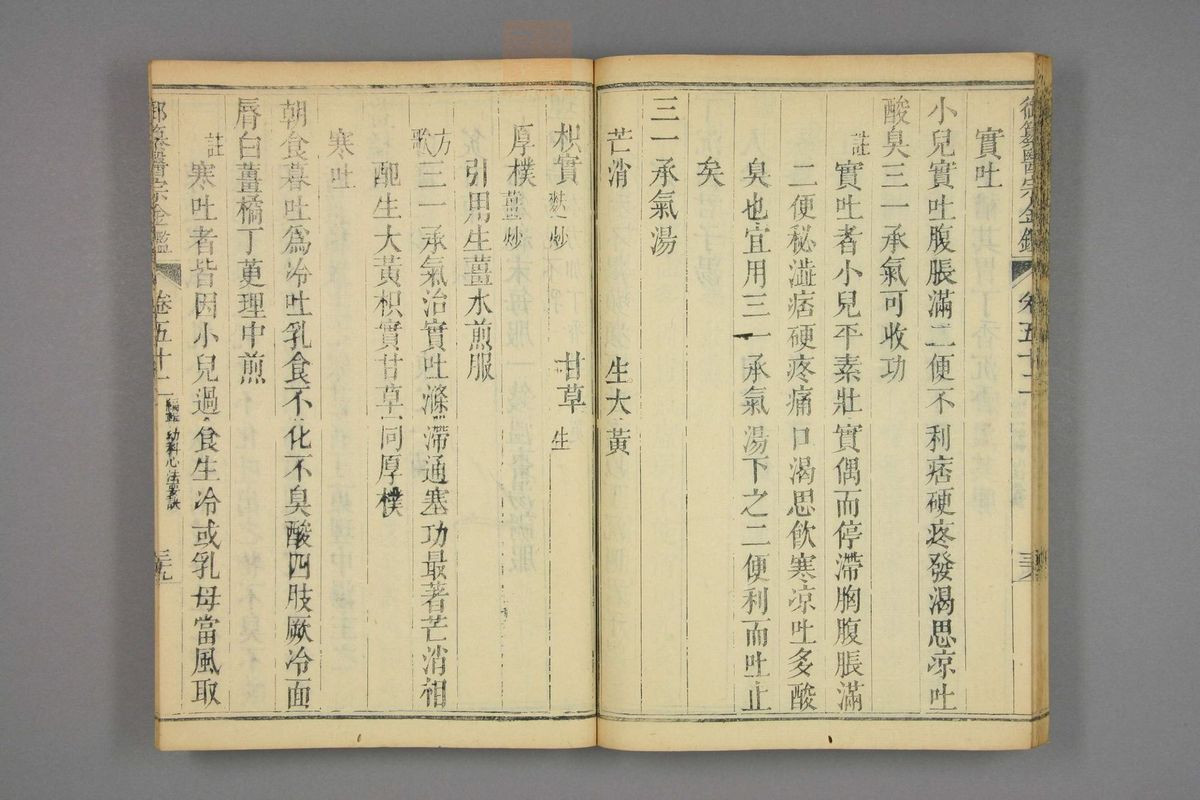 御纂醫宗金鑑 卷五十二 三六
實吐
小兒實吐腹脹滿二便不利痞硬疼發渴思凉吐
酸臭三一承氣可收功
註 實吐者小兒平素壯實偶而停滯胸腹脹滿
二便秘澁痞硬疼痛口渴思飲寒凉吐多酸
臭也宜用三一承氣湯下之二便利而吐止
矣
三一承氣湯
芒消 生大黃
枳實 麩炒 甘草 生
厚樸 薑炒
引用生薑水煎服
方歌 三一承氣治實吐滌滯通塞功最著芒消相
配生大黃枳實甘草同厚樸
寒吐
朝食暮吐爲冷吐乳食不化不臭酸四肢厥冷面
脣白薑橘丁萸理中煎
註 寒吐者皆因小兒過食生冷或乳母當風取
御纂醫宗金鑑 卷五十二 編輯幼科心法要訣